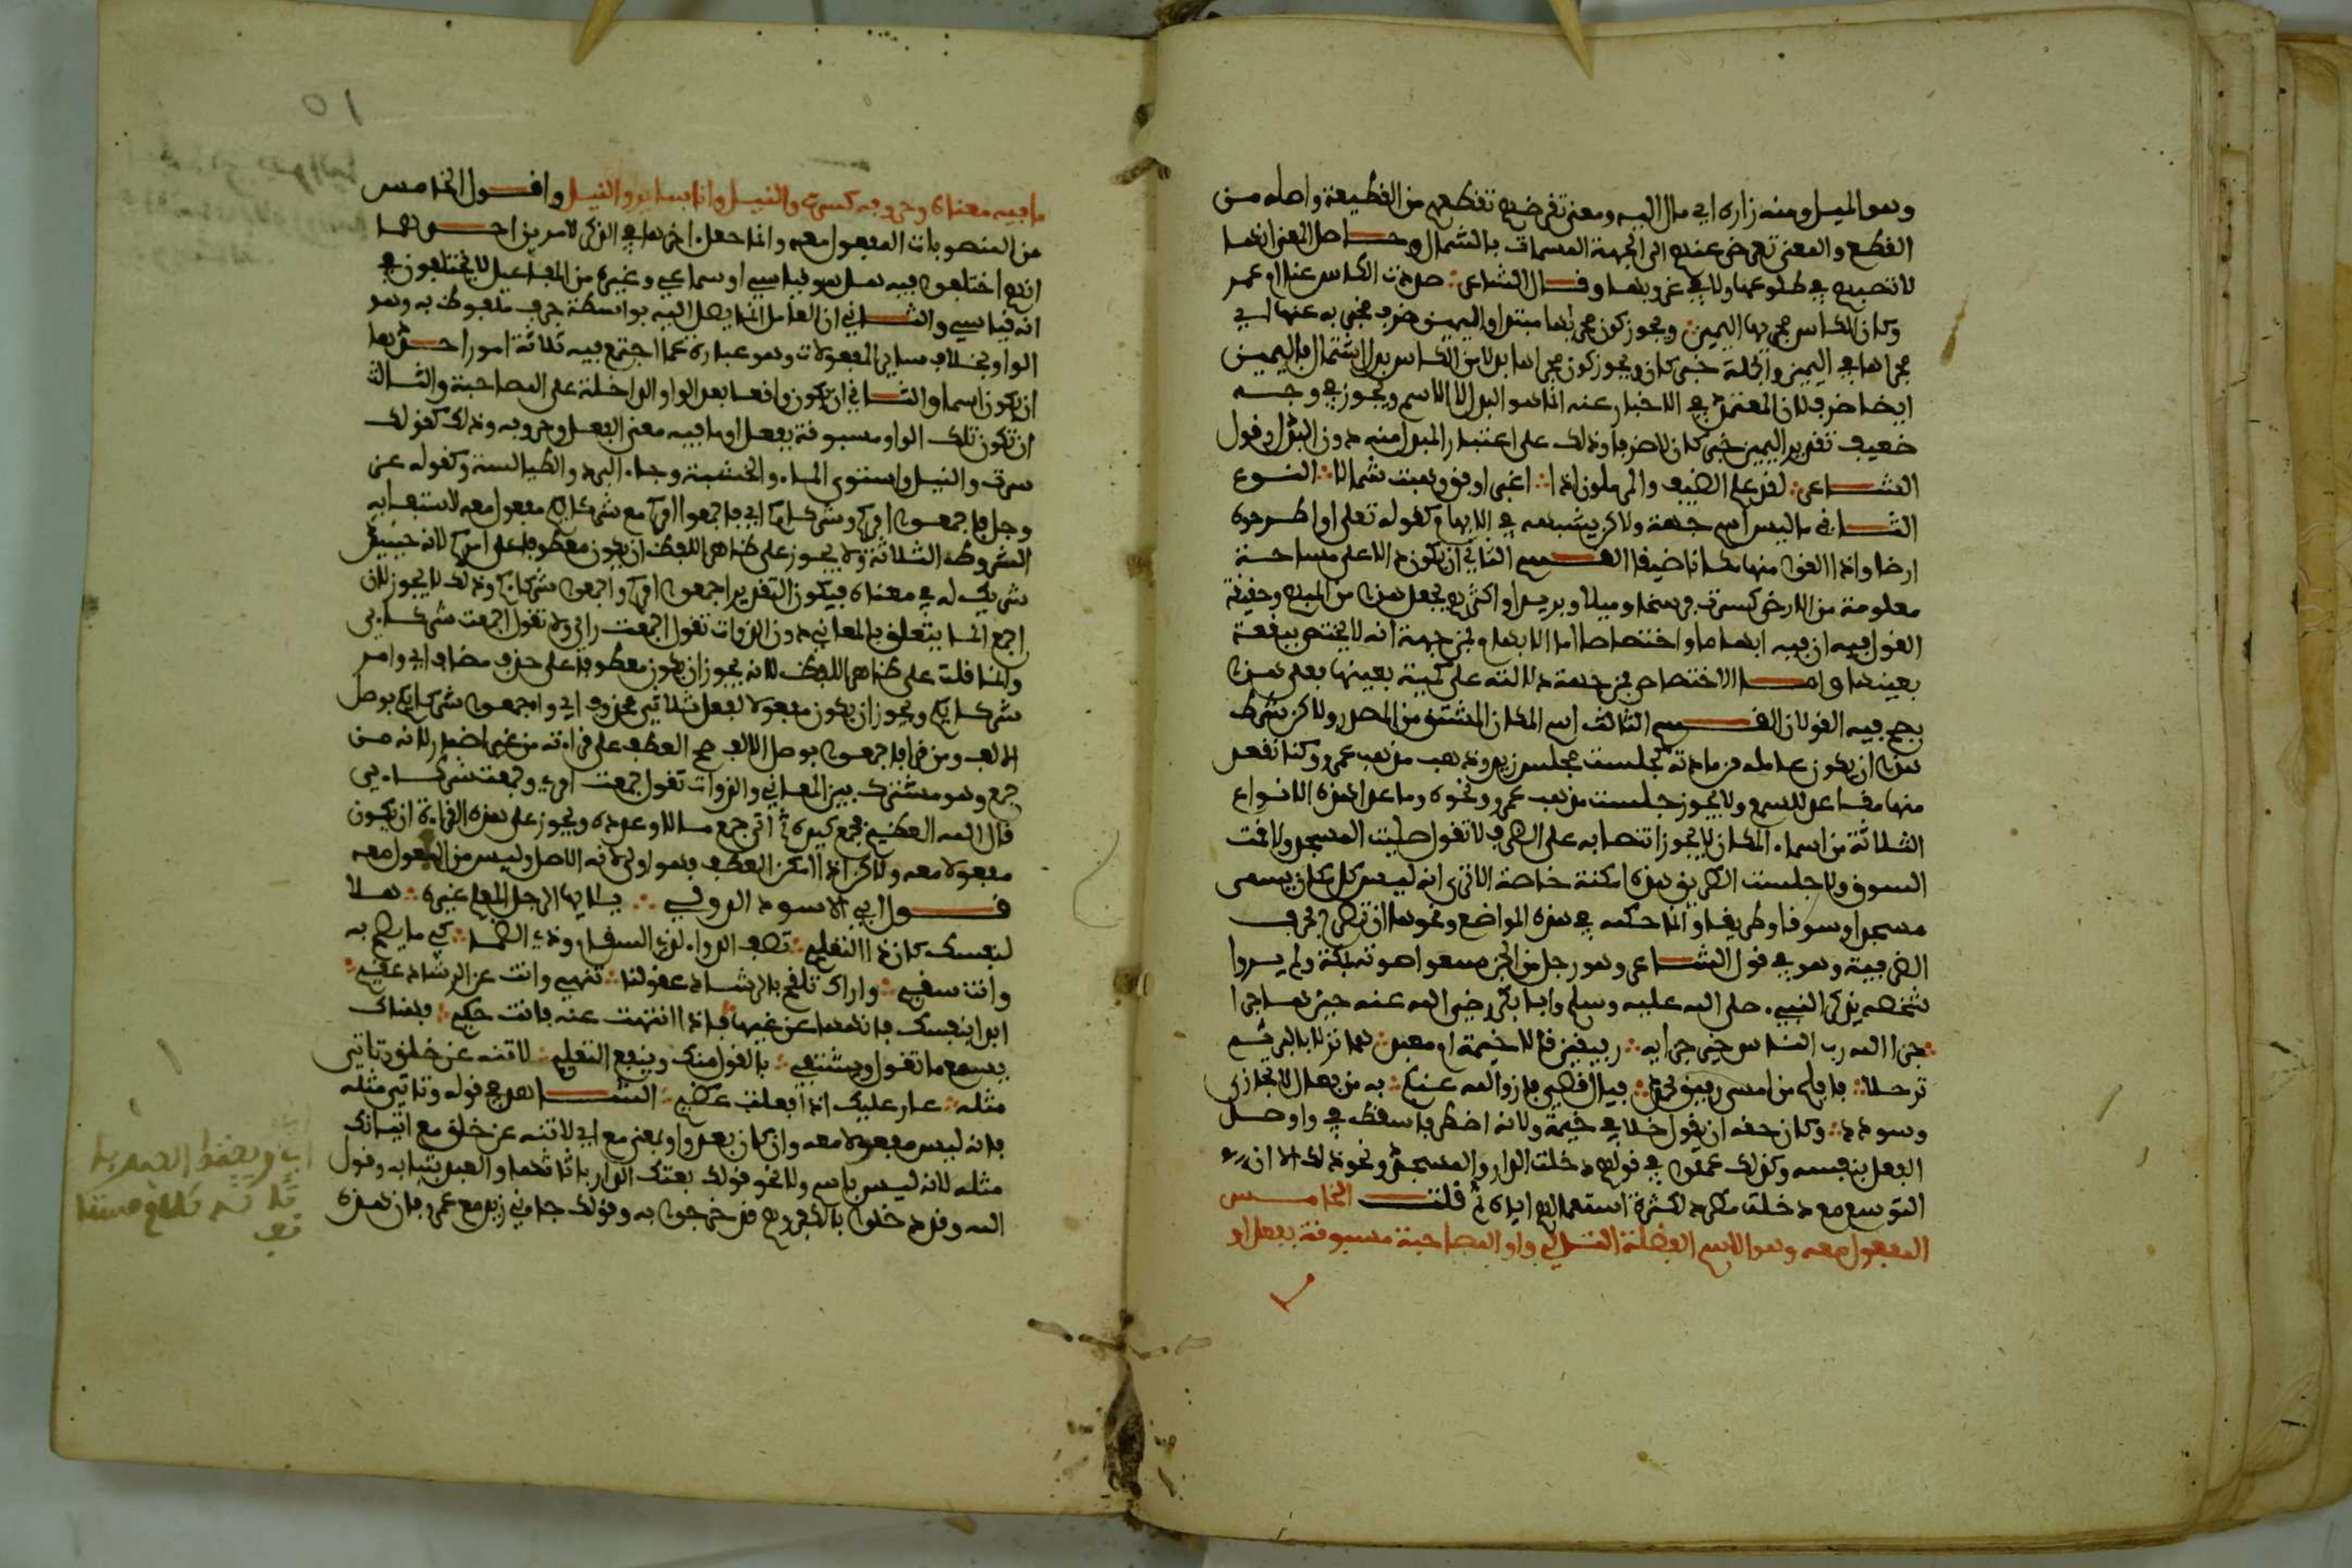 وهو الميل ومنه زاره اي مال اليه ومعنى تقرضهم تقطعهم من القطيعة واصله من
القطع والمعنى تعرض عنهم الى الجهة المسماة بالشمال وحاصل المعنى انها
لا تصيبهم في طلوعها ولا في غروبها وقال الشاعر صددت الكاس عنا ام عمرو
وكان الكاس مجراها اليمين ويجوز كون مجراها مبتدا واليمين ظرف مخبر به عنها اي
مجراها في اليمين والجملة خبر كان ويجوز كون مجراها بدلا من الكاس بدل اشتمال فاليمين
ايضا ظرف لان المعتمد في الاخبار عنه انما هو البدل لا الاسم ويجوز في وجه
ضعيف تقدير اليمين خبر كان لا ظرفا وذلك على اعتبار المبدل منه دون البدل وقول
الشاعر لقد علم الضيف والمرملون اذا اغبر افق وهبت شمالا النوع
الثاني ما ليس اسم جهة ولاكن يشبهه في الابهام كقوله تعلى او اطرحوه
ارضا واذا القوا منها مكانا ضيقا القسم الثاني ان يكون دالا على مساحة
معلومة من الارض كسرت فرسخا وميلا وبريدا واكثرهم يجعل هذا من المبهم وحقيقة
القول فيه ان فيه ابهاما واختصاصا اما الابهام فمن جهة انه لا يختص ببقعة
بعينها واما الاختصاص فمن جهة دلالته على كمية بعينها فعلى هذا
يصح فيه القولان القسم الثالث اسم المكان المشتق من المصدر ولاكن شرط
هذا ان يكون عامله من مادته كجلست مجلس زيد وذهبت مذهب عمرو وكنا نقعد
منها مقاعد للسمع ولا يجوز جلست مذهب عمرو ونحوه وما عدا هذه الانواع
الثلاثة من اسماء المكان لا يجوز انتصابه على الظرف لا تقول صليت المسجد ولا قمت
السوق ولا جلست الطريق هذه امكنة خاصة الا ترى انه ليس كل مكان يسمى
مسجدا وسوقا وطريقا وانما حكمه في هذه المواضع ونحوها ان تصرح بحرف
الظرفية وهو في قول الشاعر وهو رجل من الجن سمعوا صوته بمكة ولم يروا
شخصه يذكر النبيء صلى الله عليه وسلم وابا بكر رضي الله عنه حين هاجرا
جزا الله رب الناس خير جزايه رفيقين قالا خيمة ام معبد هما نزلا بالبر ثم
ترحلا فافلح من امسى رفيق محمد فيال قصي ما زوى الله عنكم به من فعال لا تجازى
وسودد وكان حقه ان يقول قالا في خيمة ولاكنه اضطر فاسقط في واوصل
الفعل بنفسه وكذلك عملوا في قولهم دخلت الدار والمسجد ونحو ذلك الا ان
التوسع مع دخلت مطرد لكثرة استعمالهم اياه ثم قلت الخامس
المفعول معه وهو الاسم الفضلة التالي واو المصاحبة مسبوقة بفعل او
ما فيه معناه وحروفه كسرت والنيل وانا سائر والنيل واقول الخامس
من المنصوبات المفعول معه وانما جعل اخرها في الذكر لامرين احدهما
انهم اختلفوا فيه هل هو قياسي او سماعي وغيره من المفاعيل لا يختلفون في
انه قياسي والثاني ان العامل انما يصل اليه بواسطة حرف ملفوظ به وهو
الواو بخلاف سائر المفعولات وهو عبارة عما اجتمع فيه ثلاثة امور احدها
ان يكون اسما والثاني ان يكون واقعا بعد الواو الداخلة على المصاحبة والثالث
ان تكون تلك الواو مسبوقة بفعل او ما فيه معنى الفعل وحروفه وذلك كقولك
سرت والنيل واستوى الماء والخشبة وجاء البرد والطيالسة وكقوله عز
وجل فاجمعوا امركم وشركاءكم اي فاجمعوا امركم مع شركائكم مفعول معه لاستيفائه
الشروط الثلاثة ولا يجوز على ظاهر اللفظ ان يكون معطوفا على امركم لانه حينئذ
شريك له في معناه فيكون التقدير اجمعوا امركم واجمعوا شركاءكم وذلك لا يجوز لان
اجمع انما يتعلق بالمعاني دون الذوات تقول اجمعت رايي ولا تقول اجمعت شركايي
وانما قلت على ظاهر اللفظ لانه يجوز ان يكون معطوفا على حذف مضاف اي وامر
شركايكم ويجوز ان يكون مفعولا لفعل ثلاثي محذوف اي واجمعوا شركايكم بوصل
الالف ومن قرا فاجمعوا بوصل الالف صح العطف على قراءته من غير اضمار لانه من
جمع وهو مشترك بين المعاني والذوات تقول جمعت امري وجمعت شركايي
قال الله العظيم فجمع كيده ثم اتى جمع مالا وعدده ويجوز على هذه القراءة ان يكون
مفعولا معه ولاكن اذا امكن العطف فهو اولى لانه الاصل وليس من المفعول معه
قول ابي الاسود الدولي يا ايها الرجل المعلم غيره هلا
لنفسك كان ذا التعليم تصف الدواء لذي السقام وذي الضنا كي ما يصح به
وانت سقيم واراك تلقح بالرشاد عقولنا تنهى وانت عن الرشاد عقيم
ابدا بنفسك فانهها عن غيها فاذا انتهت عنه فانت حكيم فهناك
يسمع ما تقول ويشتفي بالقول منك وينفع التعليم لا تنه عن خلق وتاتي
مثله عار عليك اذا فعلت عظيم الشاهد في قوله وتاتي مثله
فانه ليس مفعولا معه وان كان بعد واو بمعنى مع اي لا تنه عن خلق مع اتيانك
مثله لانه ليس باسم ولا نحو قولك بعتك الدار باثاثها والعبد بثيابه وقول
الله وقد دخلوا بالكفر وهم قد خرجوا به وقولك جاءني زيد مع عمرو فان هذه